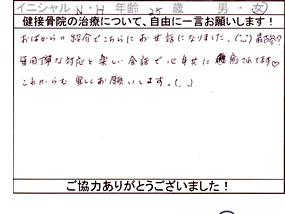 イニシャル N・H 年齢 25 歳 男・女
健接骨院の治療について、自由に一言お願いします!
おばからの紹介でこちらにお世話になりました。(^^)
毎回丁寧な対応と楽しい会話で心身共に癒されてます♡
これからも宜しくお願いします。(..)
ご協力ありがとうございました!